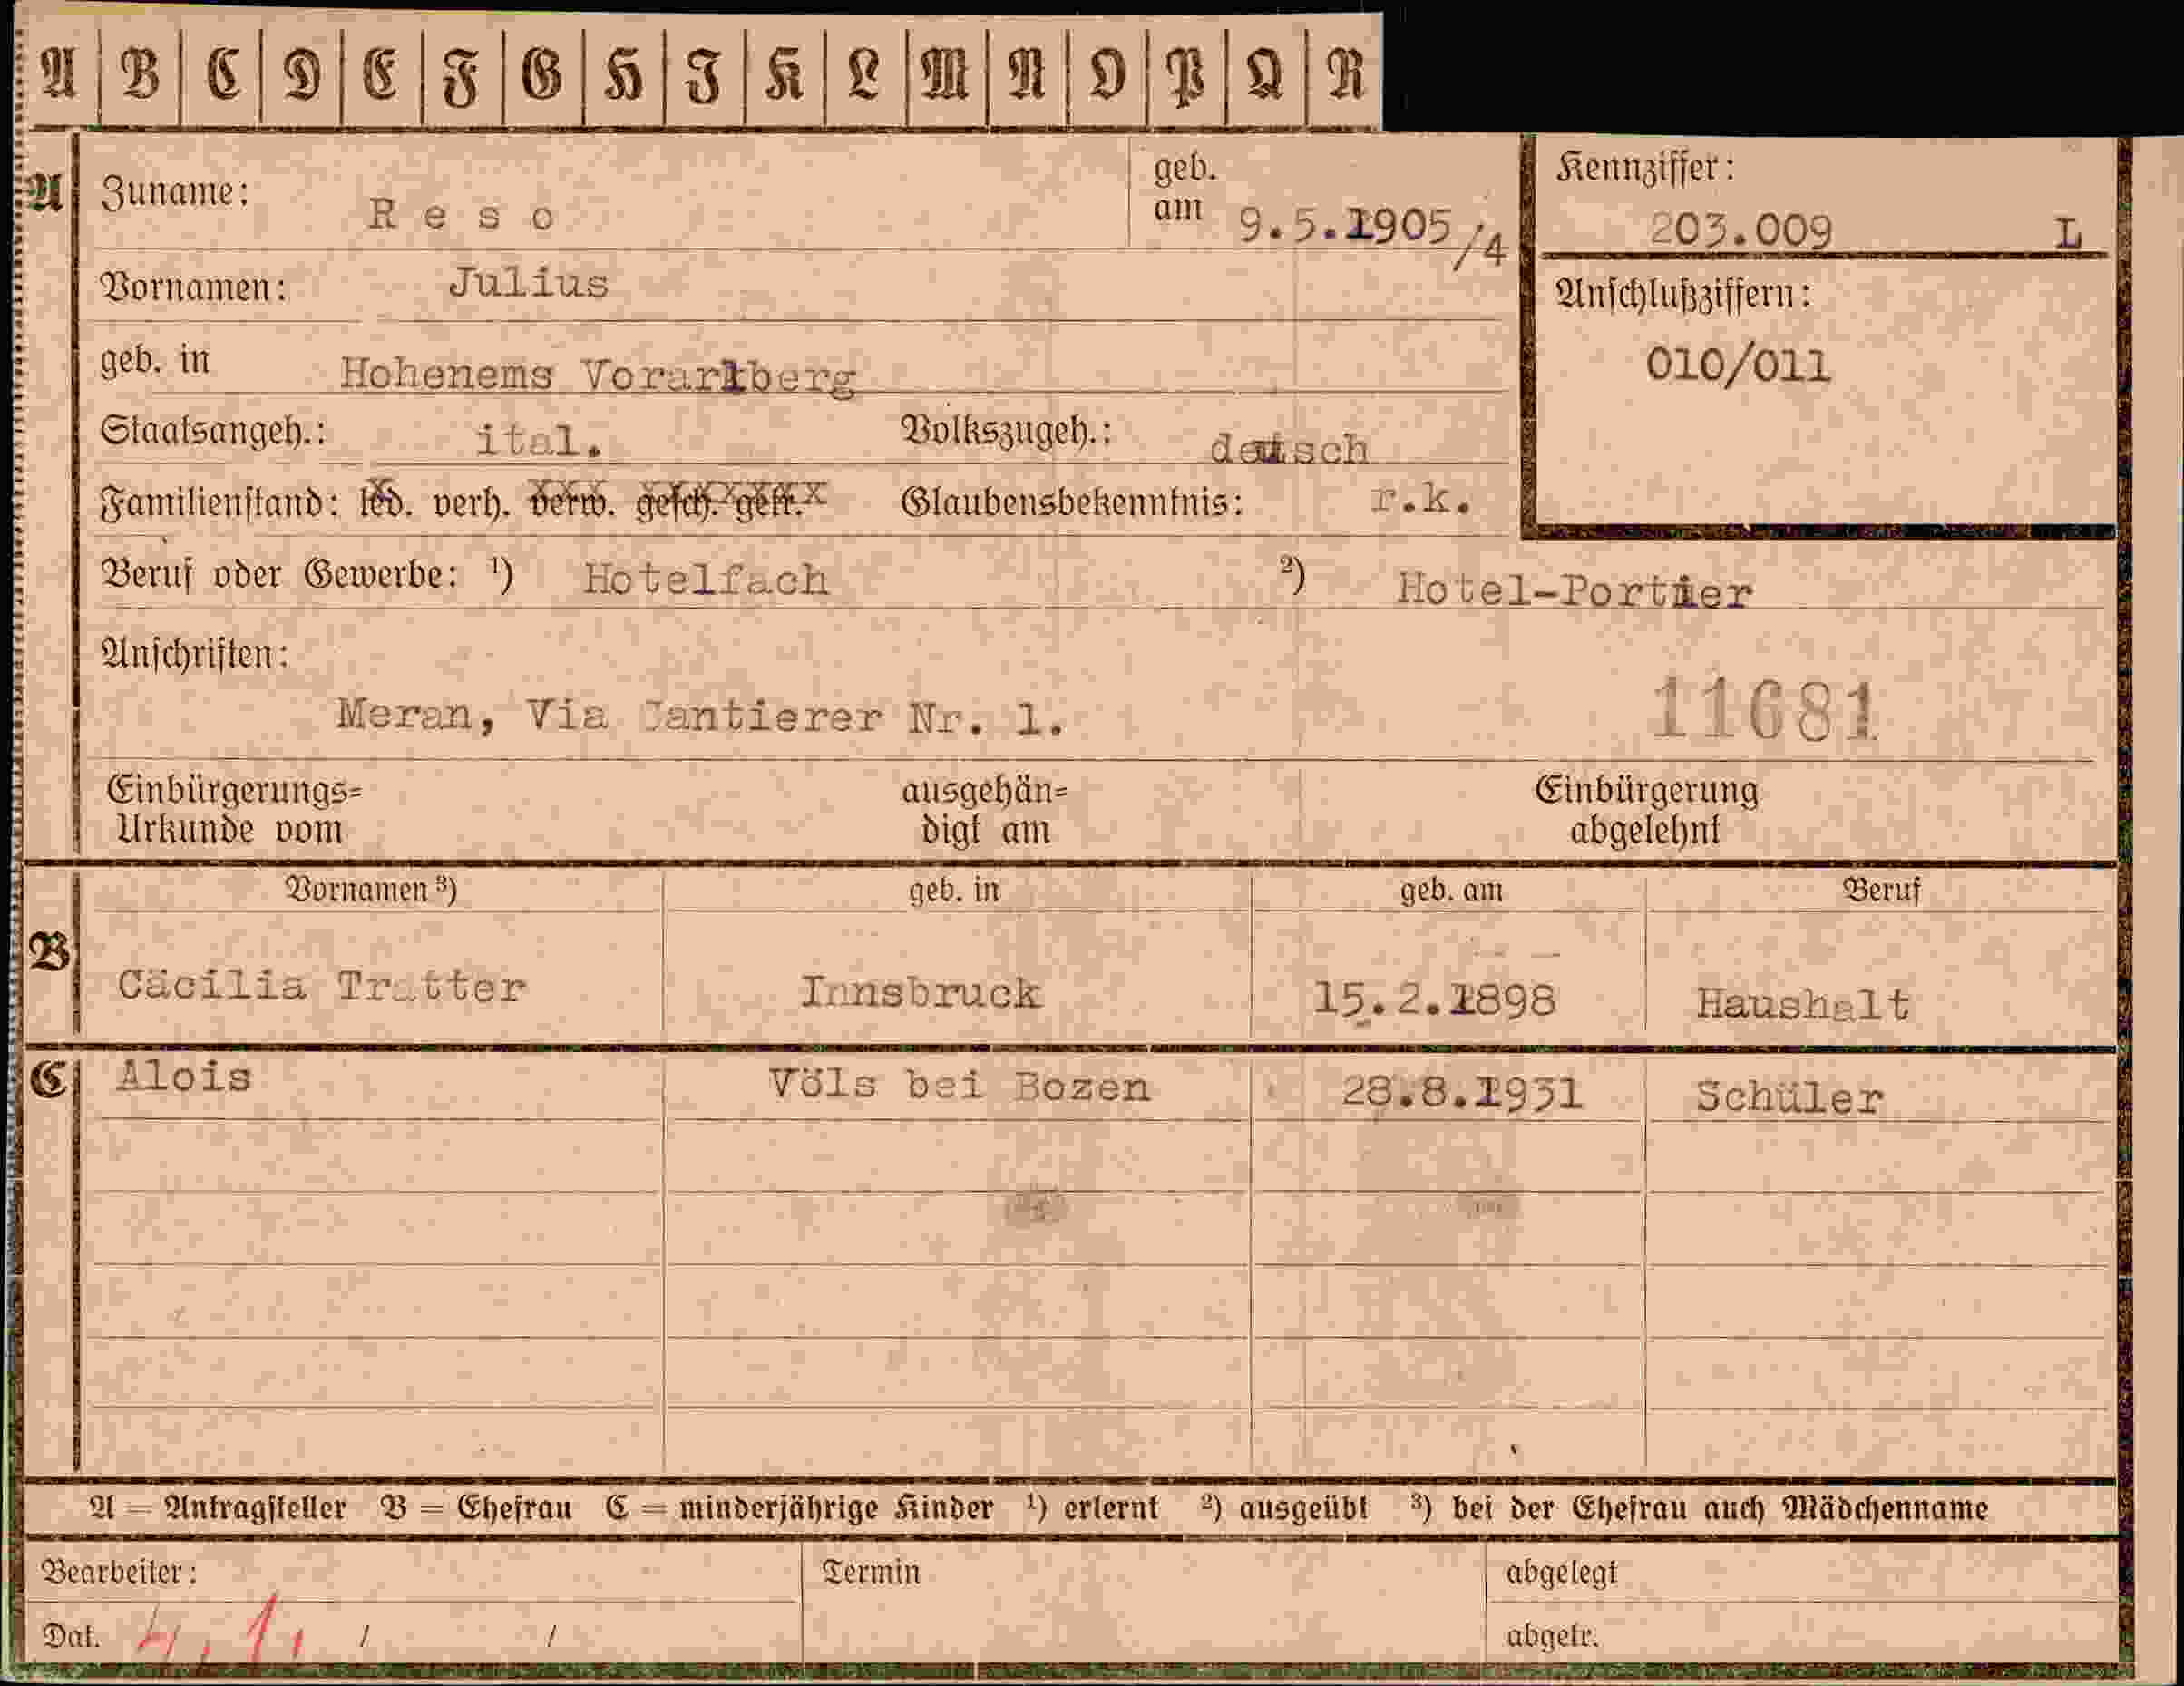 A B C D E F G H I K L M N O P Q R
A Zuname: Reso geb. am 9.5.1905/4 Kennziffer: 203.009 L
Vornamen: Julius Anschlußziffern:
geb. in Hohenems Vorarlberg 010/011
Staatsangeh.: ital. Volkszugeh.: deutsch
Familienstand: led. verh. verw. gesch. getr. Glaubensbekenntnis: r.k.
Beruf oder Gewerbe: ¹) Hotelfach ²) Hotel-Portier
Anschriften:
Meran, Via Cantierer Nr. 1. 11681
Einbürgerungs= ausgehän= Einbürgerung
Urkunde vom digt am abgelehnt
Vornamen ³) geb. in geb. am Beruf
B Cäcilia Tratter Innsbruck 15.2.1898 Haushalt
C Alois Völs bei Bozen 28.8.1931 Schüler
A = Antragsteller B = Ehefrau C = minderjährige Kinder ¹) erlernt ²) ausgeübt ³) bei der Ehefrau auch Mädchenname
Bearbeiter: Termin abgelegt
Dat. 4.1. / / abgetr.